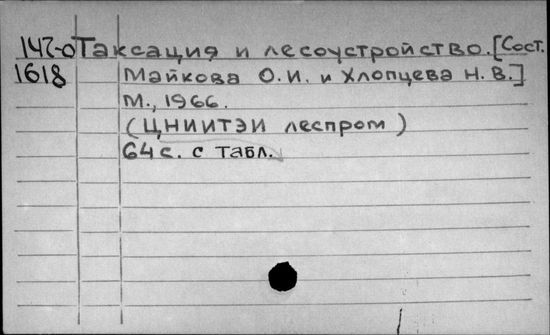 147-0 Таксация и лесоустройство. [Сост.
1618 Майкова О.И. и Хлопцева Н.В.]
М., 1966.
(ЦНИИТЭИ леспром)
64 с. с табл.